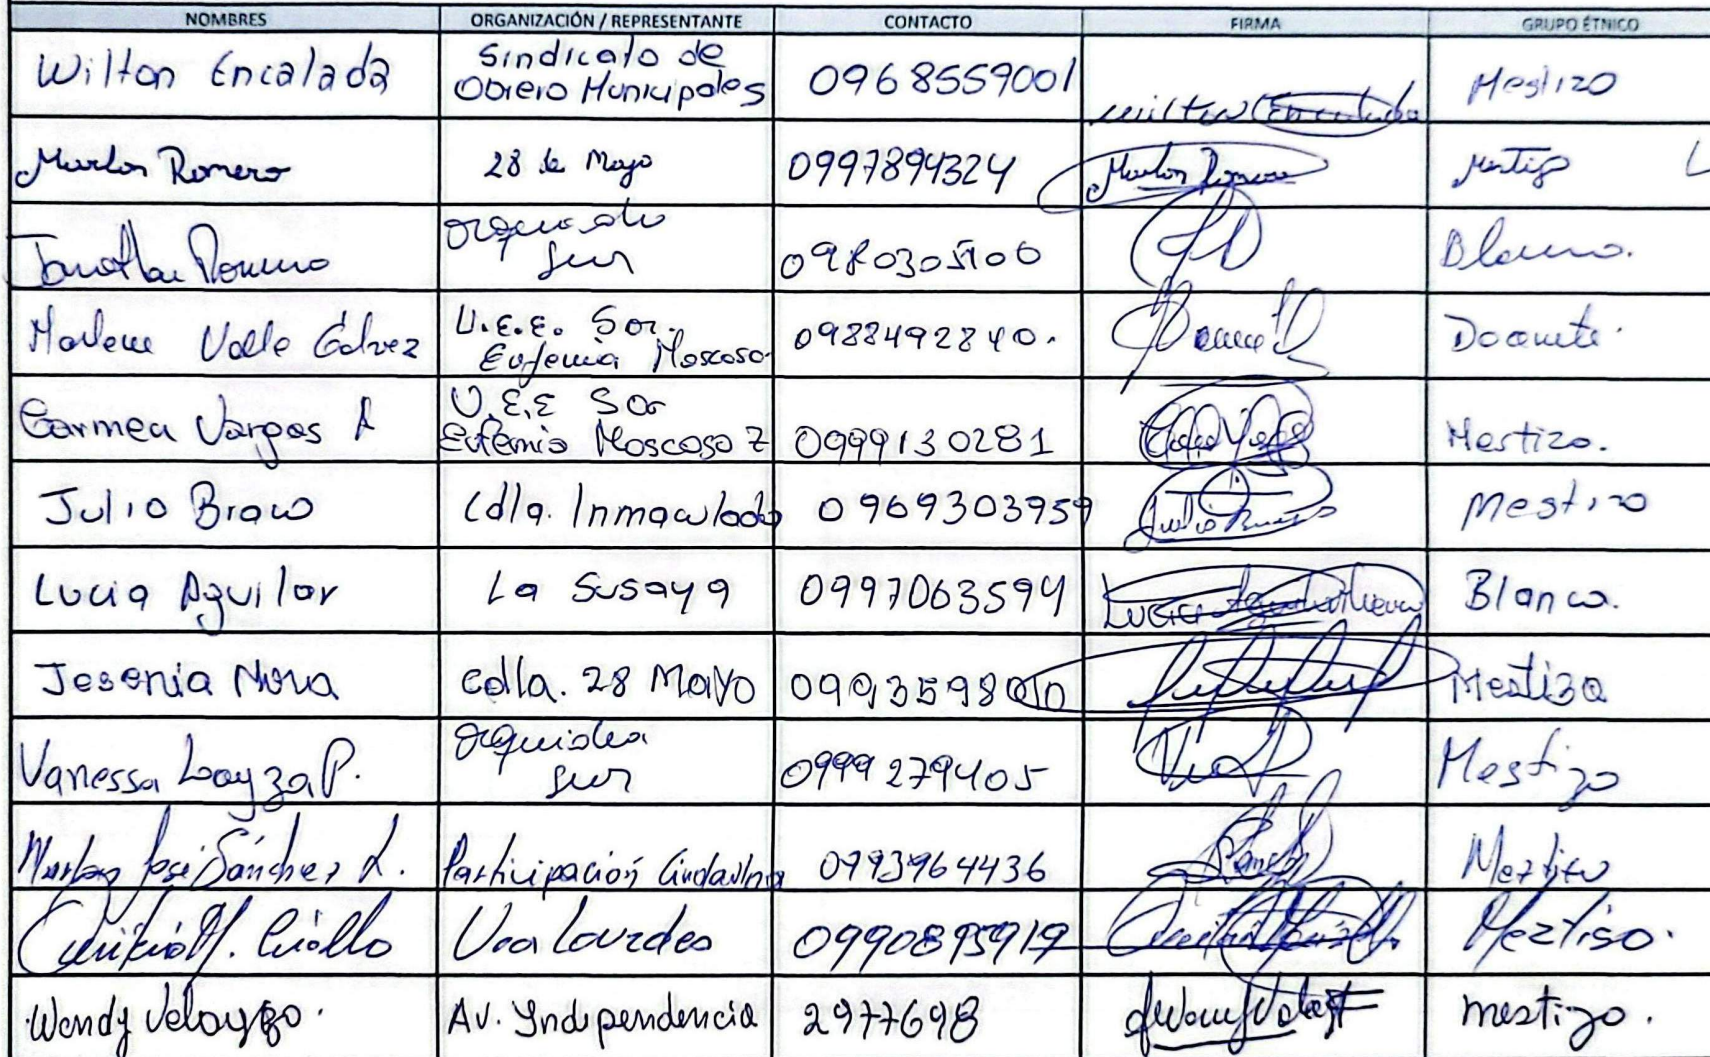 NOMBRES ORGANIZACIÓN / REPRESENTANTE CONTACTO FIRMA GRUPO ÉTNICO
Wilton Encalada Sindicato de Obrero Municipales 0968559001 Wilton Encalada Mestizo
Marlon Romero 28 de Mayo 0997894324 Marlon Romero Mestizo
Romero Orquidea Sur Blanco.
Marlene Valle Gálvez U.E.E. Sor. Eufemia Moscoso 0988492840. Docente.
Carmen Vargas A U.E.E Sor Eufemia Moscoso Z 0999130281 Mestizo.
Julio Bravo Cdla. Inmaculada 0969303959 Mestizo
Lucia Aguilar La Susaya 0997063594 Lucia Blanca.
Jesenia Mora Cdla. 28 Mayo Mestiza
Vanessa Loayza P. Orquidea Sur 0999279405 Mestizo
José Sánchez L. Participación Ciudadana 0993964436 Meztizo
M. Criollo Lourdes Meztiso.
Wendy Velayzo. Av. Independencia 2977698 mestizo.